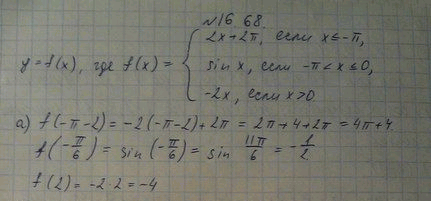 №16.68.
y=f(x), где f(x) = { 2x+2π, если x≤-π,
sin x, если -π<x≤0,
-2x, если x>0
а) f(-π-2)=-2(-π-2)+2π = 2π+4+2π = 4π+4.
f(-π/6) = sin(-π/6) = sin 11π/6 = -1/2
f(2) = -2·2 = -4